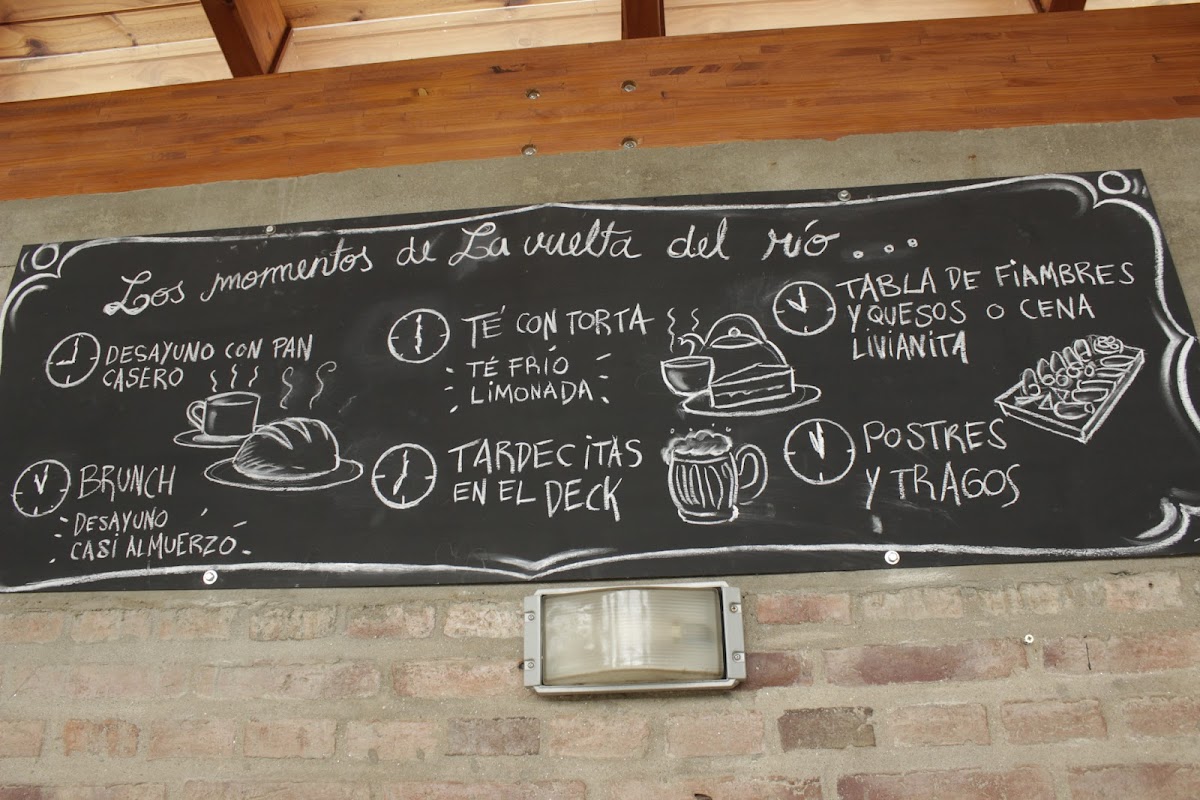 Los momentos de La vuelta del río...
DESAYUNO CON PAN
CASERO
BRUNCH
DESAYUNO
CASI ALMUERZO
TÉ CON TORTA
TÉ FRÍO
LIMONADA
TARDECITAS
EN EL DECK
TABLA DE FIAMBRES
Y QUESOS O CENA
LIVIANITA
POSTRES
Y TRAGOS